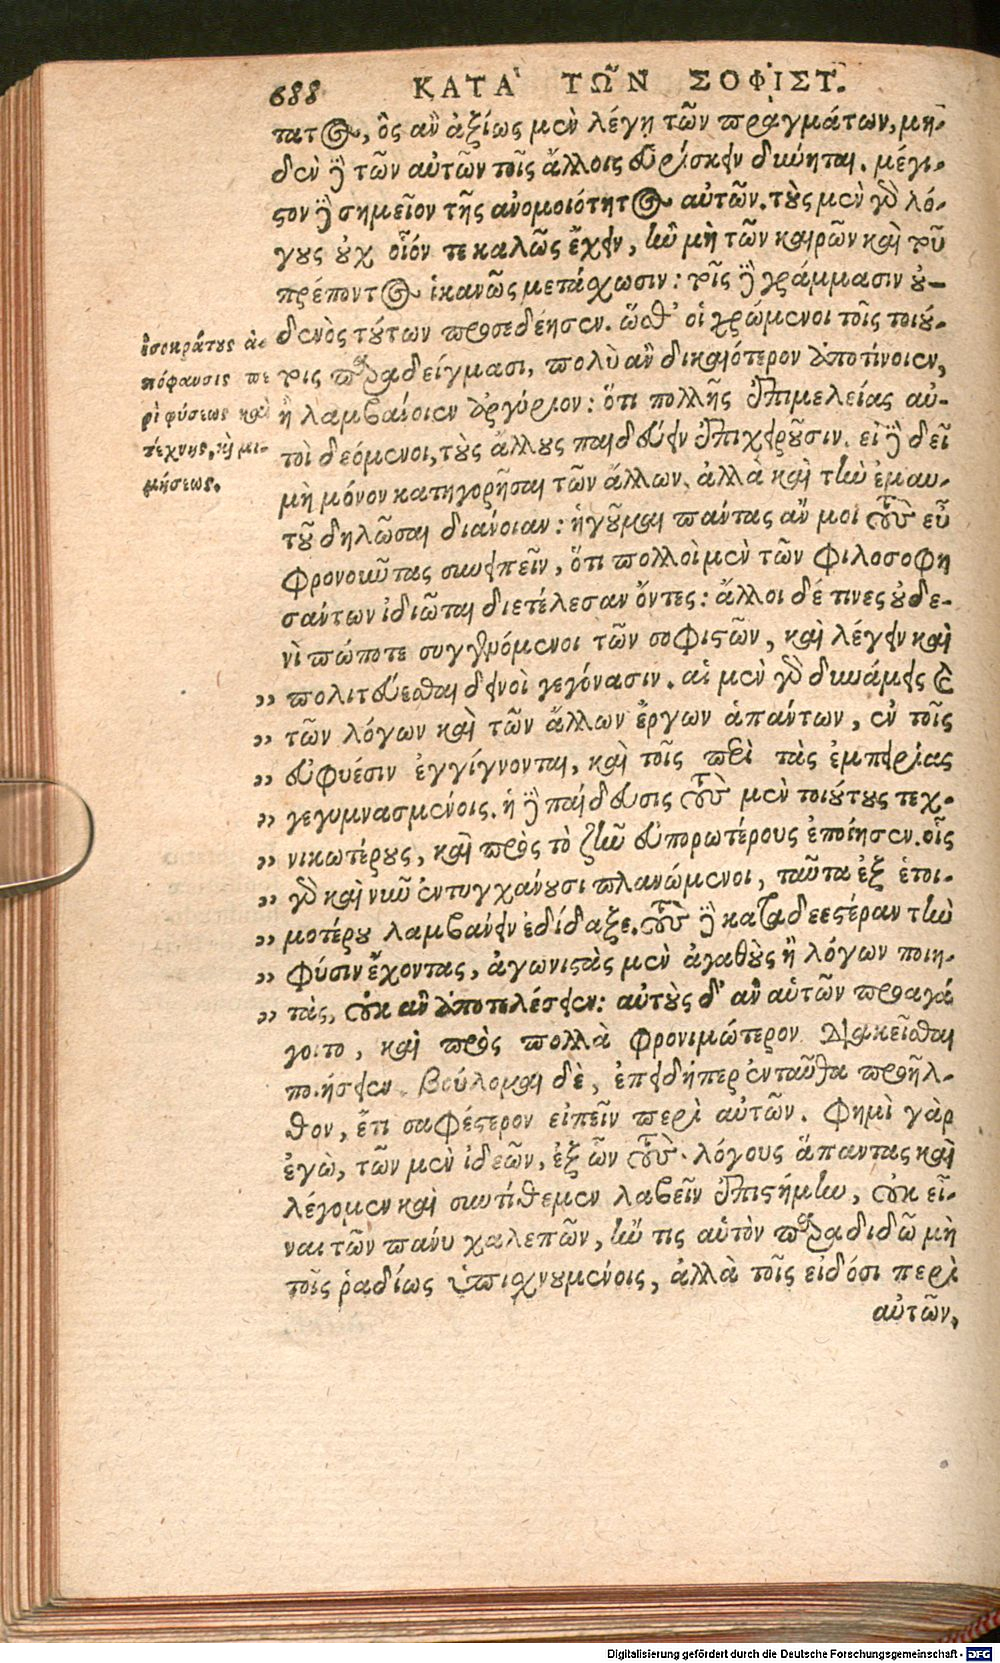 688 ΚΑΤΑ ΤΩΝ ΣΟΦΙΣΤ.
τατος, ὃς ἂν ἀξίως μὲν λέγῃ τῶν πραγμάτων, μη-
δὲν ἢ τῶν αὐτῶν τοῖς ἄλλοις εὑρίσκειν δύνηται. μέγι-
στον δὲ σημεῖον τῆς ἀνομοιότητος αὐτῶν. τοὺς μὲν γὰρ λό-
γους οὐχ οἷόν τε καλῶς ἔχειν, ἢν μὴ τῶν καιρῶν καὶ τοῦ
πρέποντος ἱκανῶς μετάχωσιν: τοῖς δὲ γράμμασιν οὐ-
δενὸς τούτων προσεδέησεν. ὥσθ' οἱ χρώμενοι τοῖς τοιού-
τοις παραδείγμασι, πολὺ ἂν δικαιότερον ἀποτίνοιεν,
ἢ λαμβάνοιεν ἀργύριον: ὅτι πολλῆς ἐπιμελείας αὐ-
τοὶ δεόμενοι, τοὺς ἄλλους παιδεύειν ἐπιχειροῦσιν. εἰ δὲ δεῖ
μὴ μόνον κατηγορῆσαι τῶν ἄλλων, ἀλλὰ καὶ τὴν ἐμαυ-
τοῦ δηλῶσαι διάνοιαν: ἡγοῦμαι πάντας ἄν μοι τοὺς εὖ
φρονοῦντας συνειπεῖν, ὅτι πολλοὶ μὲν τῶν φιλοσοφη
σάντων ἰδιῶται διετέλεσαν ὄντες: ἄλλοι δέ τινες οὐδε-
νὶ πώποτε συγγενόμενοι τῶν σοφιστῶν, καὶ λέγειν καὶ
„ πολιτεύεσθαι δεινοὶ γεγόνασιν. αἱ μὲν γὰρ δυνάμεις καὶ
„ τῶν λόγων καὶ τῶν ἄλλων ἔργων ἁπάντων, ἐν τοῖς
„ εὐφυέσιν ἐγγίγνονται, καὶ τοῖς περὶ τὰς ἐμπειρίας
„ γεγυμνασμένοις. ἡ δὲ παίδευσις τοὺς μὲν τοιούτους τεχ-
„ νικωτέρους, καὶ πρὸς τὸ ζῆν εὐπορωτέρους ἐποίησεν. οἷς
„ γὰρ καὶ νῦν ἐντυγχάνουσι πλανώμενοι, ταῦτα ἐξ ἑτοι-
„ μοτέρου λαμβάνειν ἐδίδαξε. τοὺς δὲ καταδεεστέραν τὴν
„ φύσιν ἔχοντας, ἀγωνιστὰς μὲν ἀγαθοὺς ἢ λόγων ποιη-
„ τὰς, οὐκ ἂν ἀποτελέσειεν: αὐτοὺς δ' ἂν αὑτῶν προαγά
γοιτο, καὶ πρὸς πολλὰ φρονιμώτερον διακεῖσθαι
ποιήσειεν. βούλομαι δὲ, ἐπειδήπερ ἐνταῦθα προῆλ-
θον, ἔτι σαφέστερον εἰπεῖν περὶ αὐτῶν. φημὶ γὰρ
ἐγὼ, τῶν μὲν ἰδεῶν, ἐξ ὧν τοὺς λόγους ἅπαντας καὶ
λέγομεν καὶ συντίθεμεν λαβεῖν ἐπιστήμην, οὐκ εἶ-
ναι τῶν πάνυ χαλεπῶν, ἤν τις αὑτὸν παραδιδῶ μὴ
τοῖς ῥαδίως ὑπισχνουμένοις, ἀλλὰ τοῖς εἰδόσι περὶ
αὐτῶν.
ἰσοκράτους ἀ-
πόφαυσις πε
ρὶ φύσεως καὶ
τέχνης, καὶ μι-
μήσεως.
Digitalisierung gefördert durch die Deutsche Forschungsgemeinschaft - DFG